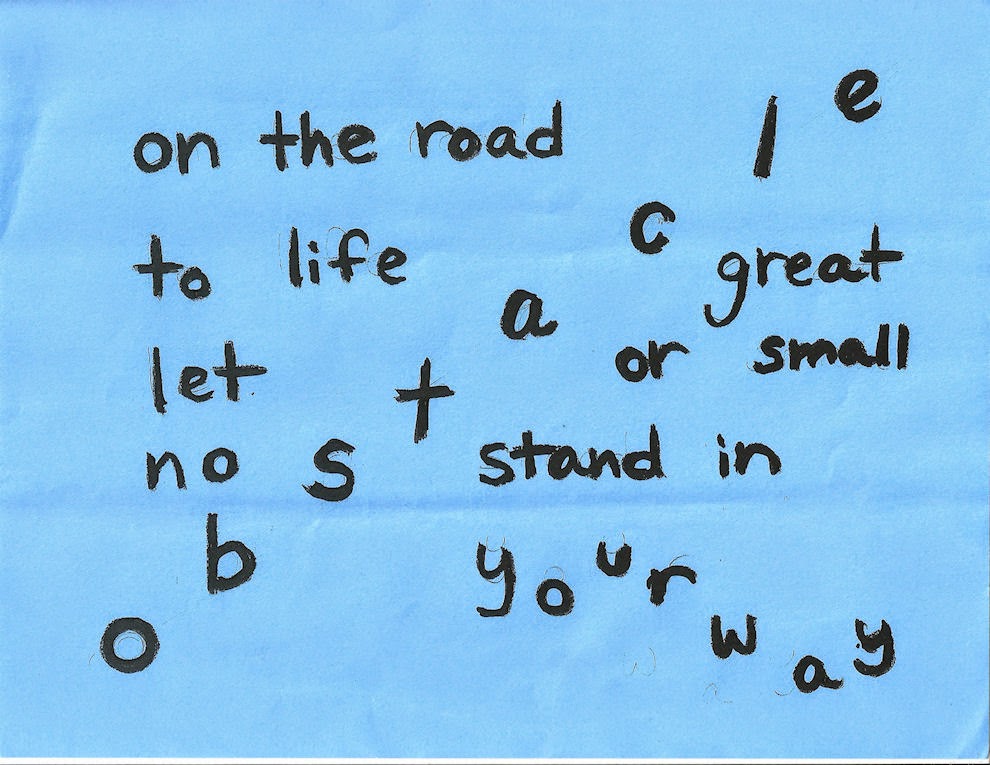 on the road
to life
let
no
obstacle
great
or small
stand in
your
way